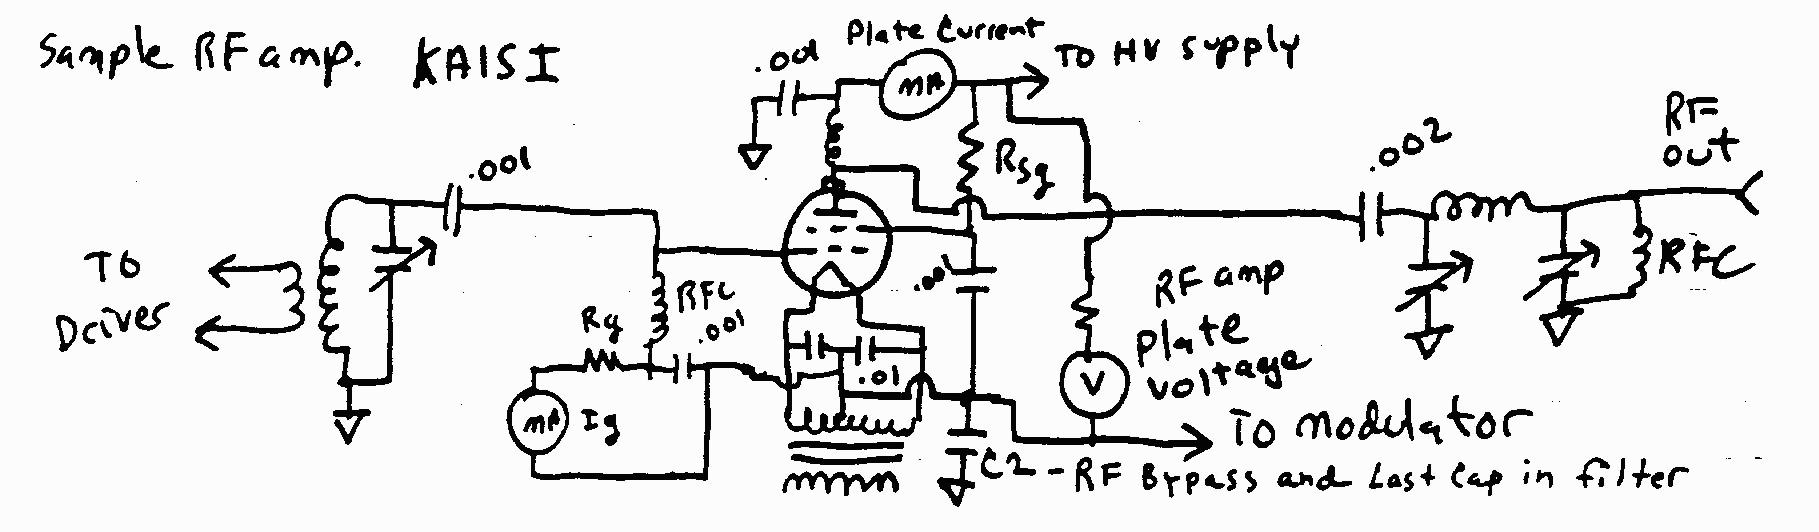 Sample RF amp. KA1SI
.001
Plate Current
mA
TO HV supply
.001
Rsg
.002
RF
out
TO
Driver
RFC
.001
Rg
mA Ig
.001
.01
RF amp
Plate
voltage
V
RFC
TO modulator
C2 - RF Bypass and Last Cap in filter